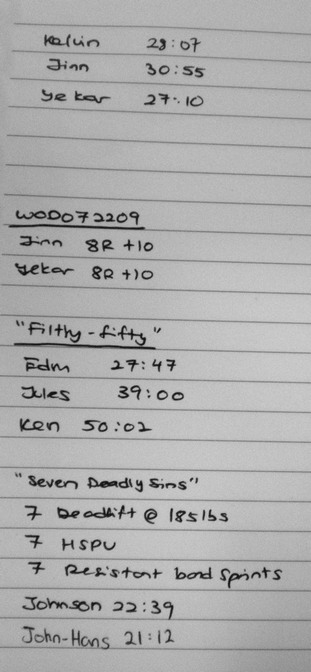 Kelvin 28:07
Jinn 30:55
Yekar 27:10
WOD072209
Jinn 8R +10
Yekar 8R +10
"Filthy-fifty"
Edm 27:47
Jules 39:00
Ken 50:02
"Seven Deadly Sins"
7 Deadlift @ 185lbs
7 HSPU
7 Resistant band Sprints
Johnson 22:39
John-Hans 21:12